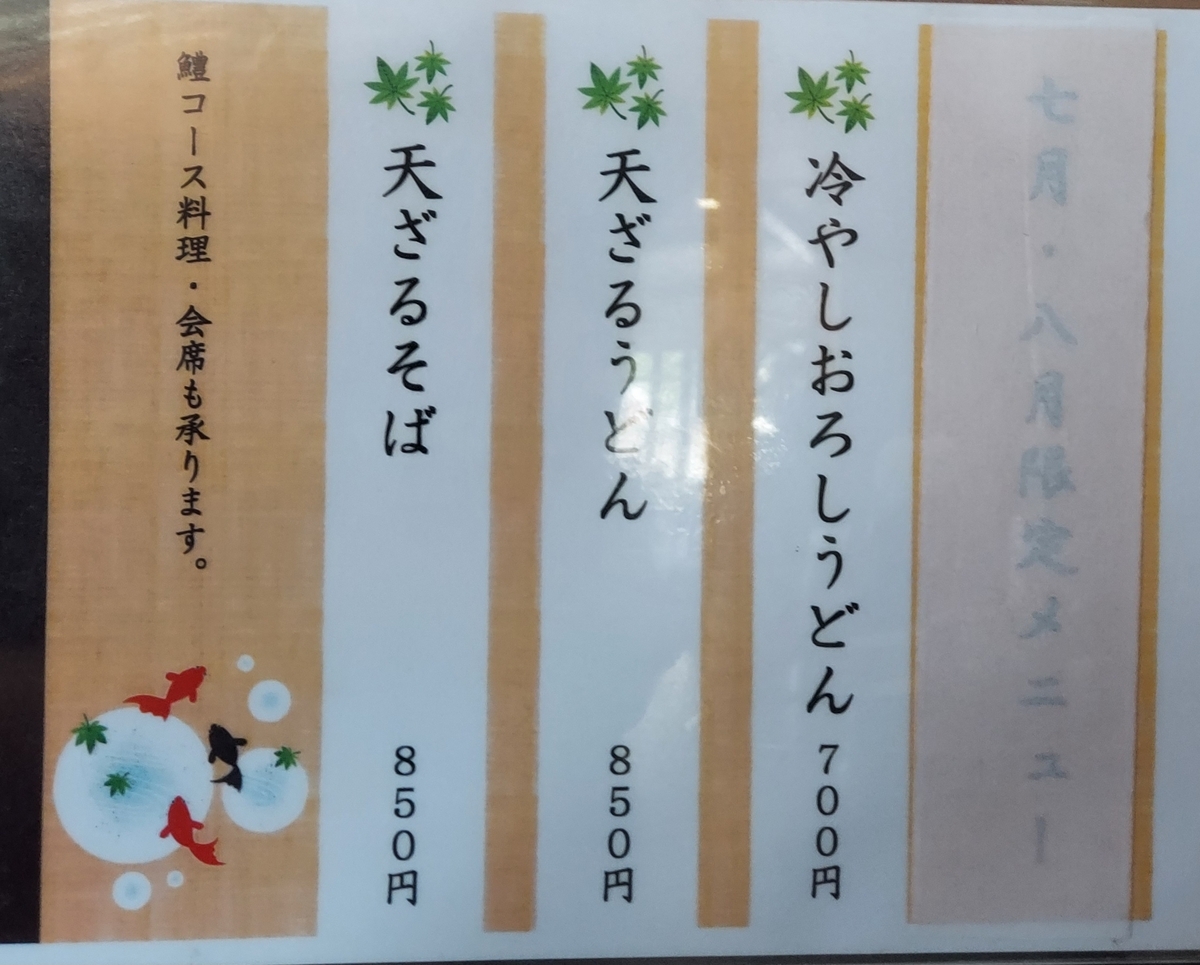 七月・八月限定メニュー
冷やしおろしうどん 700円
天ざるうどん 850円
天ざるそば 850円
鱧コース料理・会席も承ります。